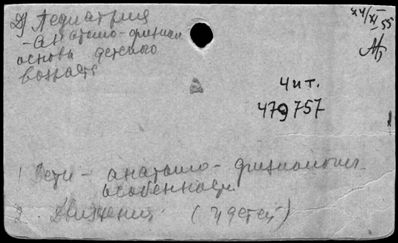 Д) Педиатрия
- анатомо-физиол.
основы детского
возраста
XI/55
Чит.
479757
1 Дети - анатомо-физиологич.
особенности.
2. Движения (у детей)